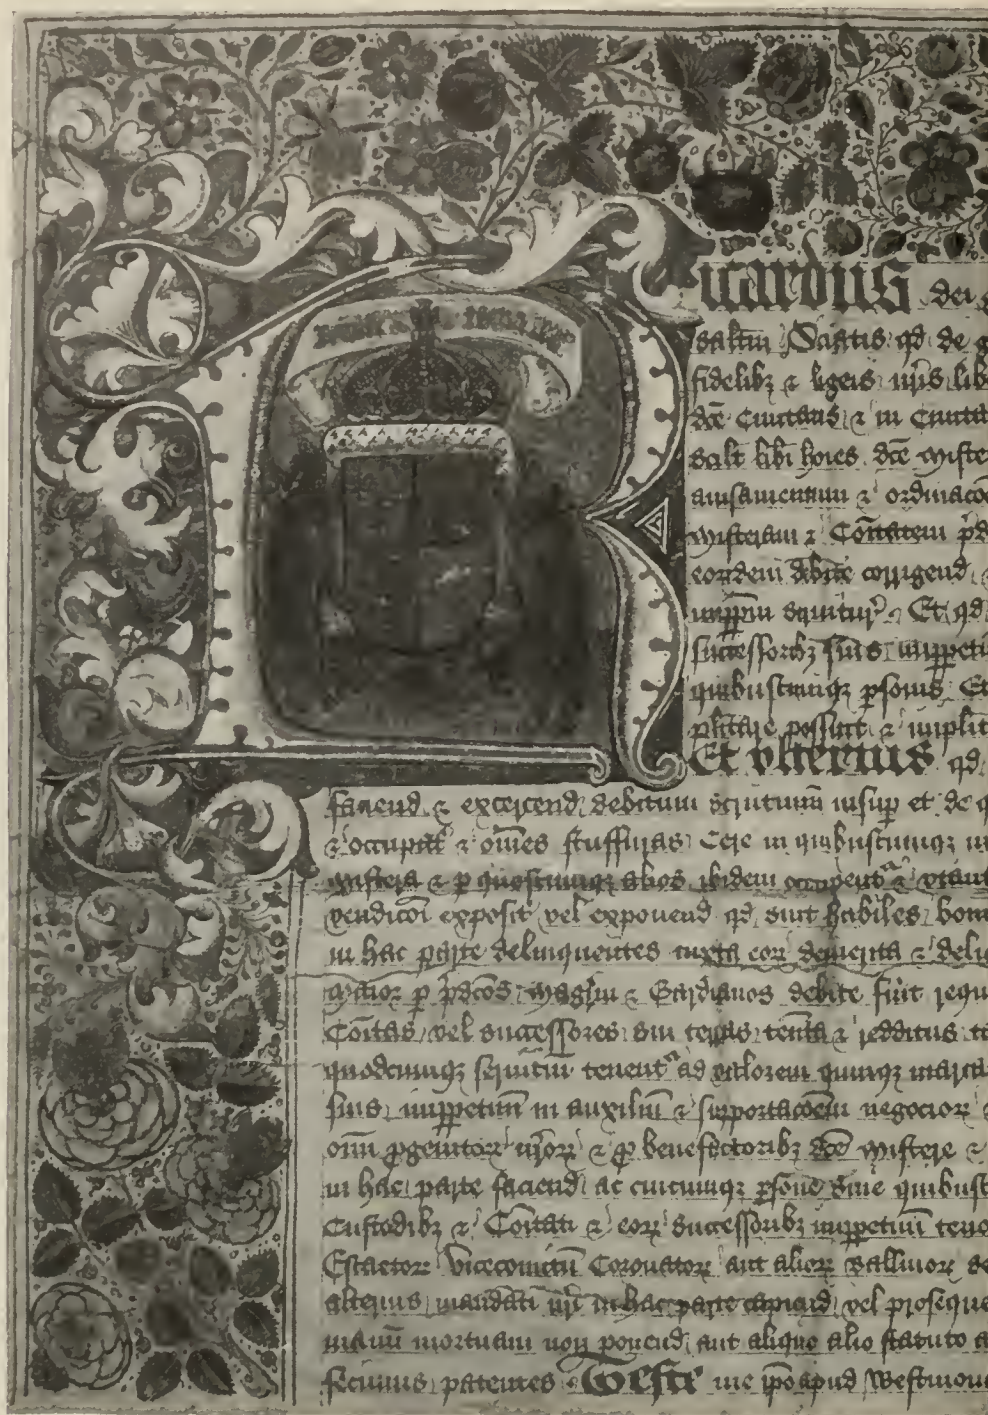 Ricardus dei
saltm Sciatis qd de
fidelibz & ligeis nris lib
dce Civitatis & in Civita
salt libi hoies dce Miste
avisamentum & ordinacoe
Misteram & Coitatem pd
eordem debite corrigend
imppm sequitur Et qd
successoribz suis imppetu
quibuscumqz psonis Et
plitare possint & implit
Et ulterius qd
faciend & excercend debitum scrutinium insup et de
& occupant & omes stuffuras Cere in quibuscumqz
Mistera & p quoscumqz alios ibidem utant
vendicoi exposit vel exponend qd sint habiles bon
in hac parte delinquentes iuxta eor demerita & deli
Maior p pdcos Magrm & Gardianos debite fuit requ
Coitas vel successores sui terras tenta & redditus
quodcumqz servitiu tenent ad valorem quinqz marca
suis imppetuu in auxiliu & supportacoem negocior
oim pgenitor nror & p benefactoribz dce Mistere &
in hac parte faciend ac cuicumqz psone sive quibusc
Custodibz & Coitati & eor successoribz imppetuu teno
Escaetor Vicecomitu Coronator aut alior Ballivor
alterius mandati nri in hac parte capiend vel proseque
manu mortuam non ponend aut aliquo alio statuto
fecimus patentes Teste me ipo apud Westmon